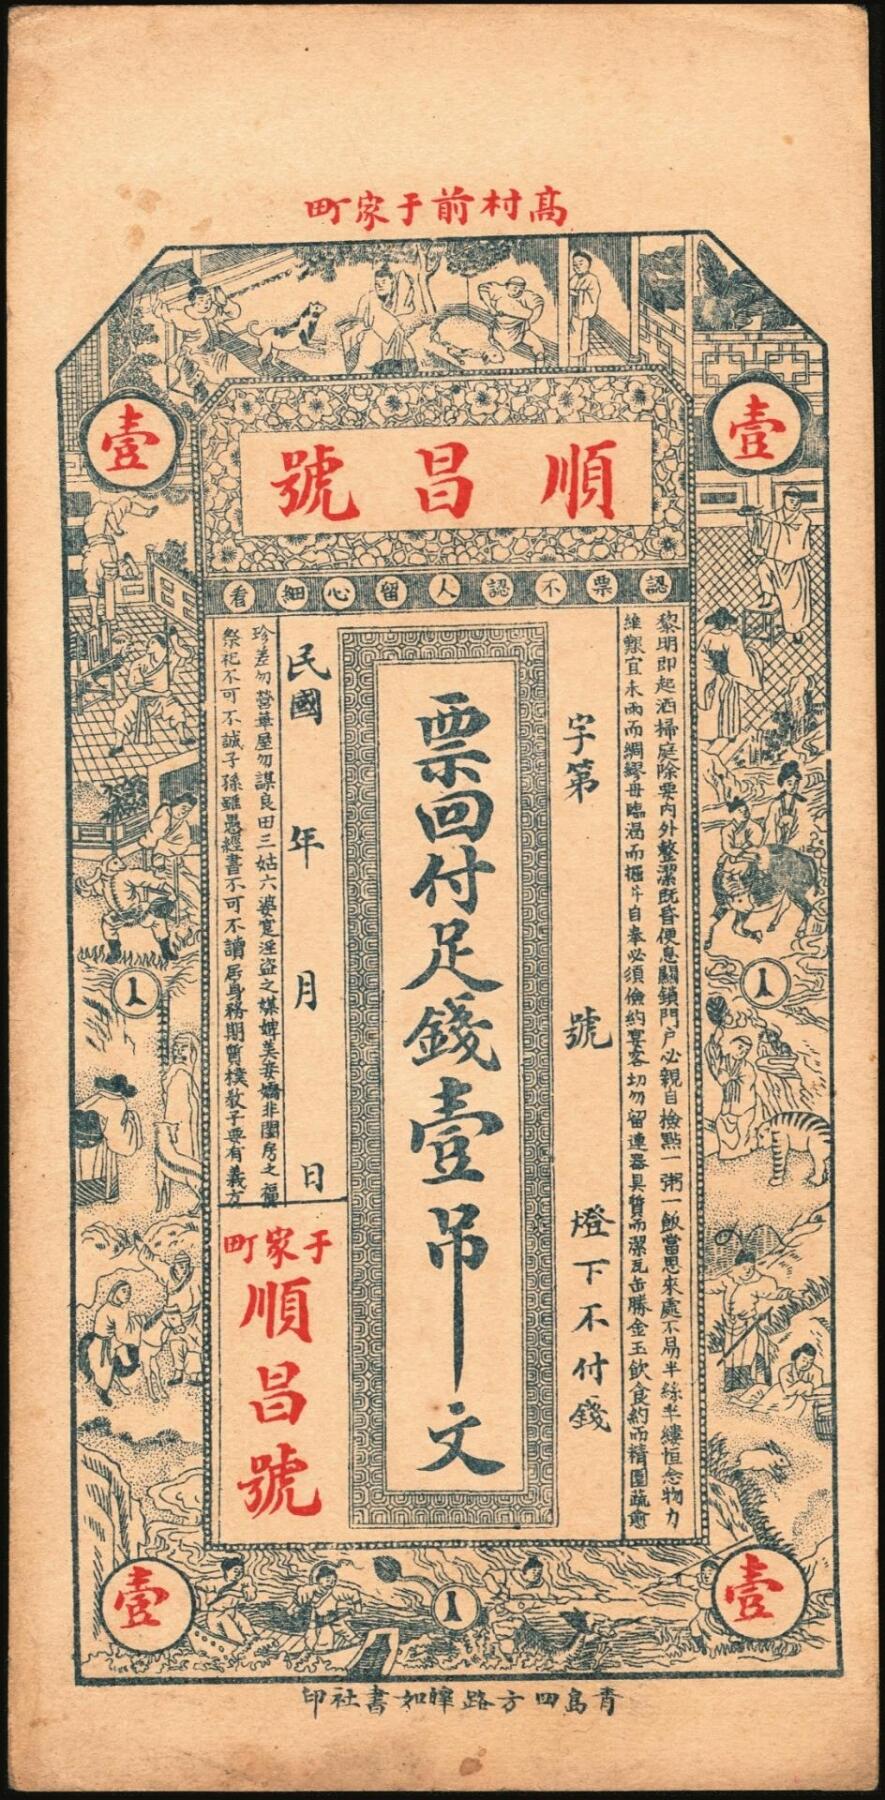 高村前于家町
壹
壹
順昌號
認票不認人留心細看
黎明即起洒掃庭除要内外整潔既昏便息關鎖門户必親自撿點一粥一飯當思來處不易半絲半縷恒念物力
維艱宜未雨而綢繆毋臨渴而掘井自奉必須儉約宴客切勿留連器具質而潔瓦缶勝金玉飲食約而精園蔬愈
字第 號
燈下不付錢
票回付足錢壹吊文
民國 年 月 日
珍羞勿營華屋勿謀良田三姑六婆寔淫盜之媒婢美妾嬌非閨房之福
祭祀不可不誠子孫雖愚經書不可不讀居身務期質樸教子要有義方
于家町
順昌號
1
1
壹
壹
1
青島四方路 如書社印